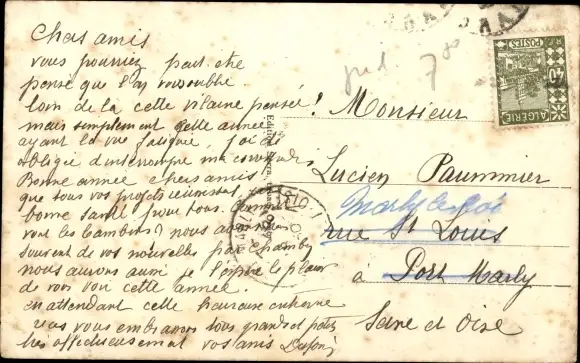 Chers amis
vous pourriez peut etre
penser que l'on vous oublie
loin de la cette vilaine pensée!
mais simplement cette année
ayant la vue fatiguée, j'ai dû
obligée d'interrompre ma
Bonne année chers amis
que tous vos projets réussissent
bonne santé pour tous. Comment
vont les bambins? nous avons
souvent de vos nouvelles par Chamby
nous aurons aussi je l'espère le plaisir
de vous voir cette année.
en attendant cette heureuse
vous embrassons tous grands et petits
très affectueusement vos amis
Monsieur
Lucien Paummier
Marly le Roi
rue St Louis
à Port Marly
Seine et Oise
POSTES
ALGERIE
20